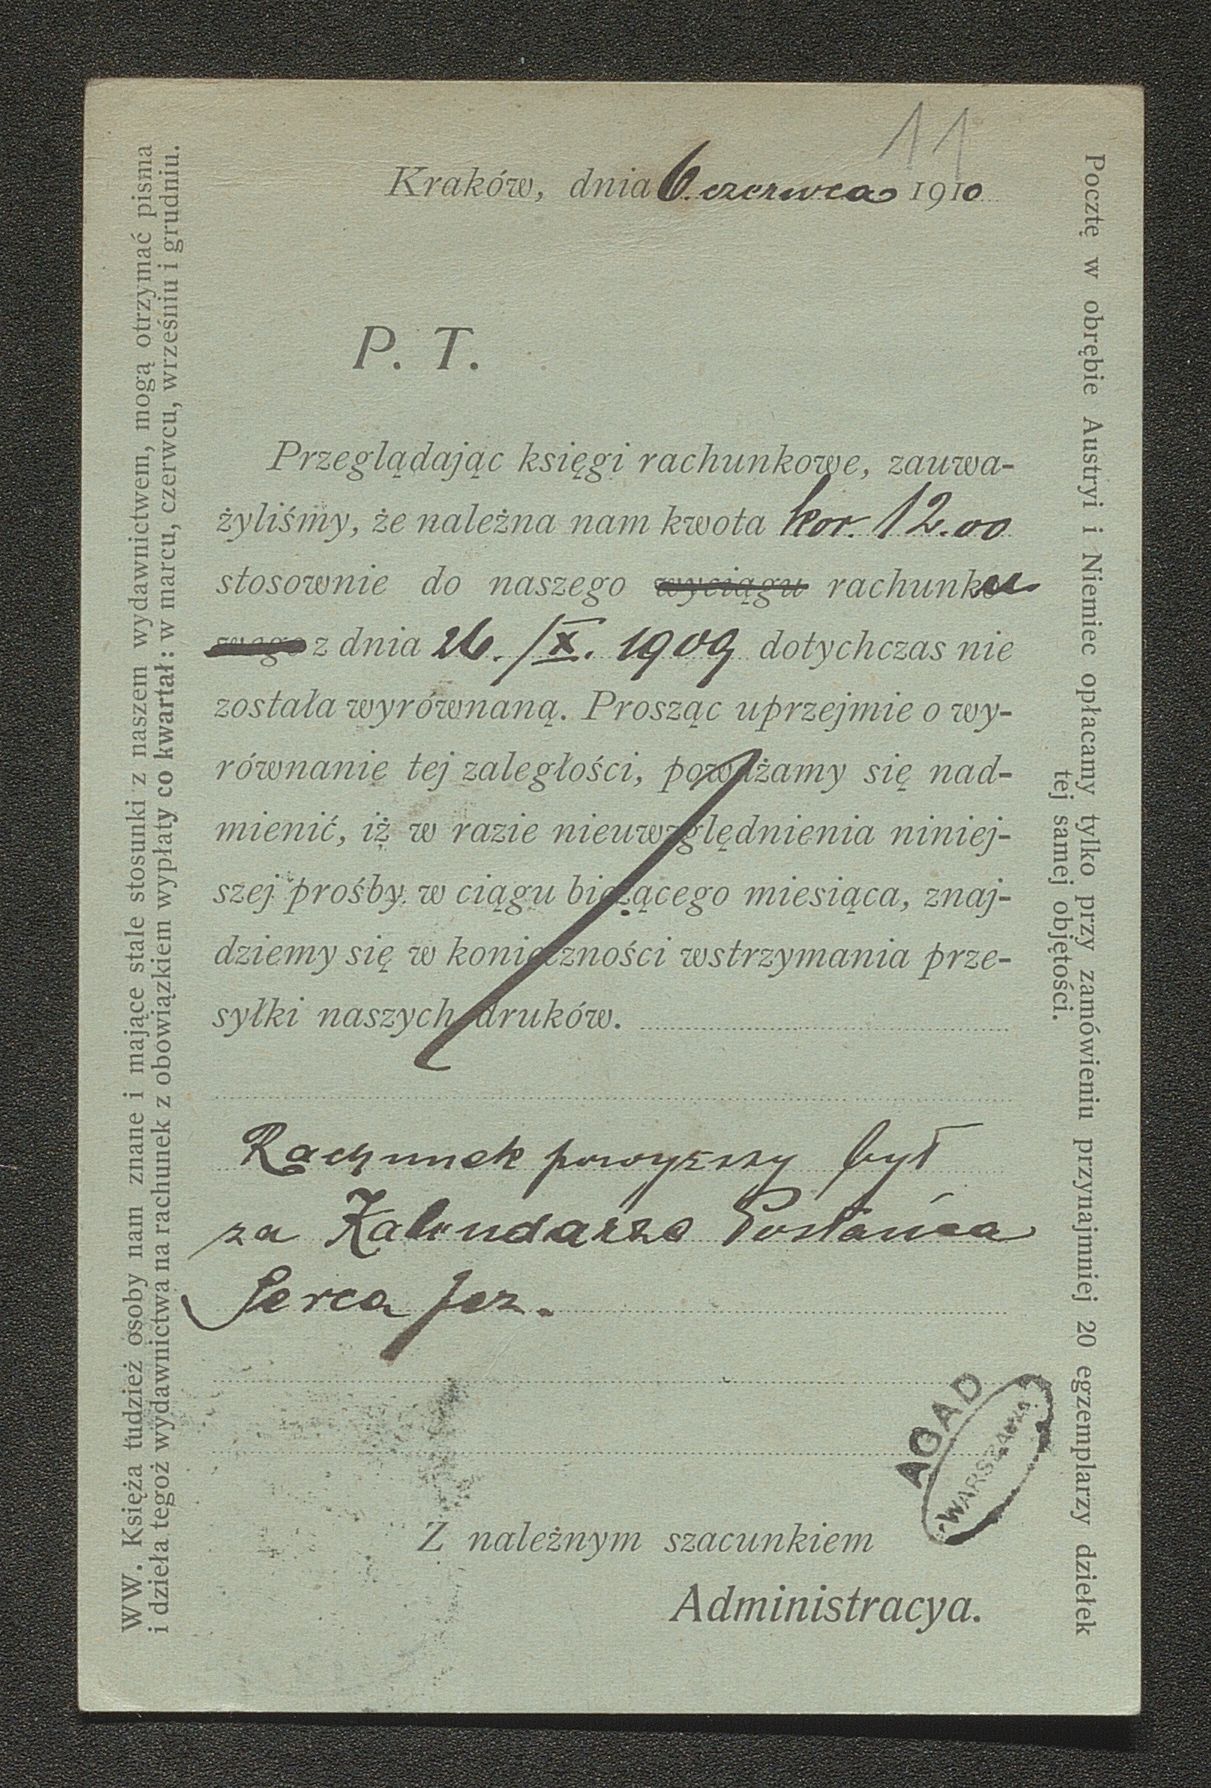 11
Kraków, dnia 6. czerwca 1910
P. T.
Przeglądając księgi rachunkowe, zauwa-
żyliśmy, że należna nam kwota kor. 12.00
stosownie do naszego wyciągu rachunku
z dnia 26./X. 1909 dotychczas nie
została wyrównaną. Prosząc uprzejmie o wy-
równanie tej zaległości, poważamy się nad-
mienić, iż w razie nieuwzględnienia niniej-
szej prośby w ciągu bieżącego miesiąca, znaj-
dziemy się w konieczności wstrzymania prze-
syłki naszych druków.
Rachunek powyższy był
za Kalendarze Posłańca
Serca Jez.
Z należnym szacunkiem
Administracya.
AGAD
WARSZAWA
WW. Księża tudzież osoby nam znane i mające stale stosunki z naszem wydawnictwem, mogą otrzymać pisma
i dzieła tegoż wydawnictwa na rachunek z obowiązkiem wypłaty co kwartał: w marcu, czerwcu, wrześniu i grudniu.
Pocztę w obrębie Austryi i Niemiec opłacamy tylko przy zamówieniu przynajmniej 20 egzemplarzy dziełek
tej samej objętości.